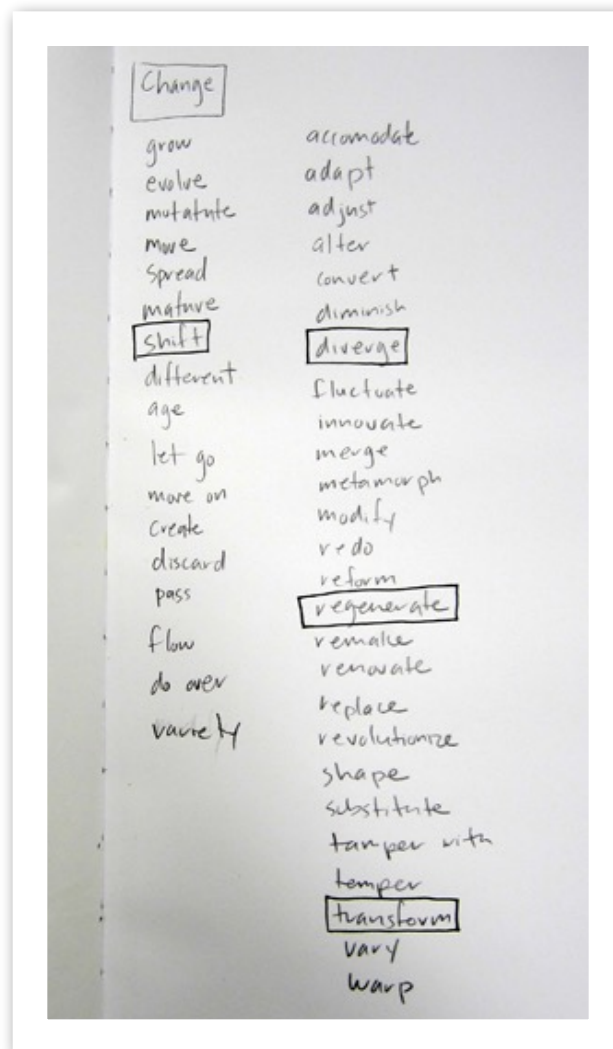 Change
grow
evolve
mutatute
move
spread
mature
shift
different
age
let go
move on
create
discard
pass
flow
do over
variety
accomodate
adapt
adjust
alter
convert
diminish
diverge
fluctuate
innovate
merge
metamorph
modify
redo
reform
regenerate
remake
renovate
replace
revolutionize
shape
substitute
tamper with
temper
transform
vary
warp